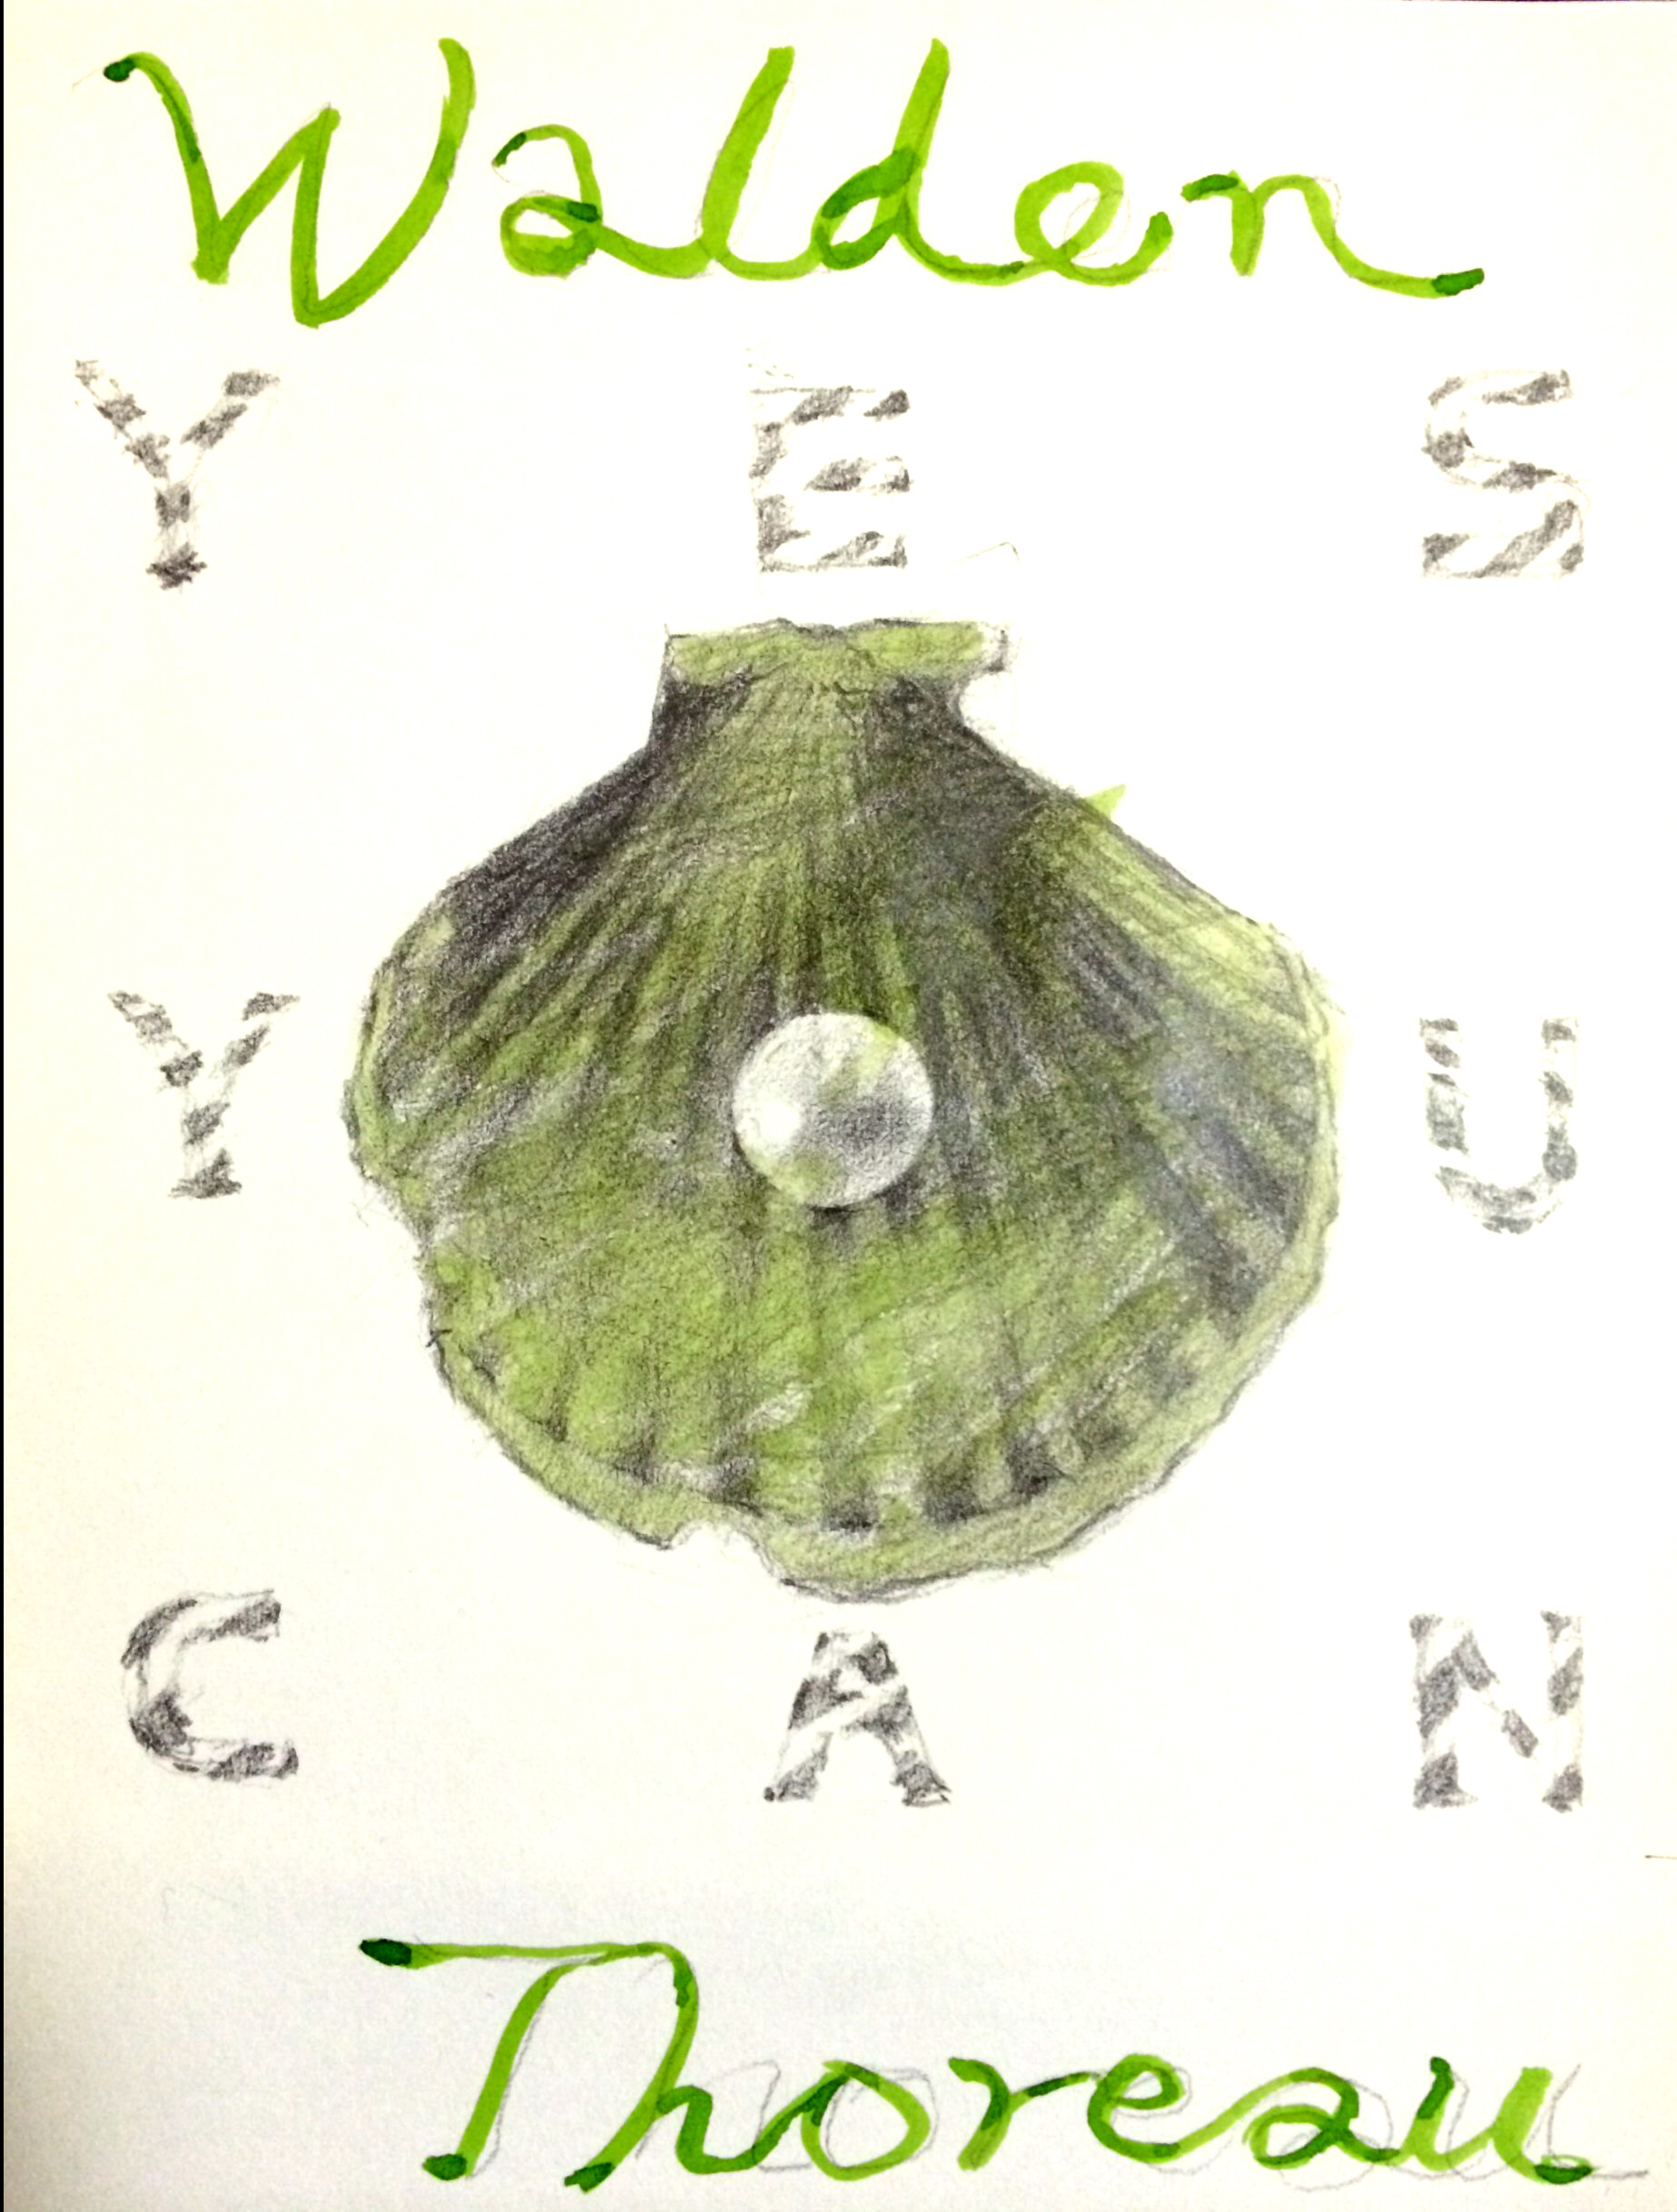 Walden
Y E S
Y U
C A N
Thoreau